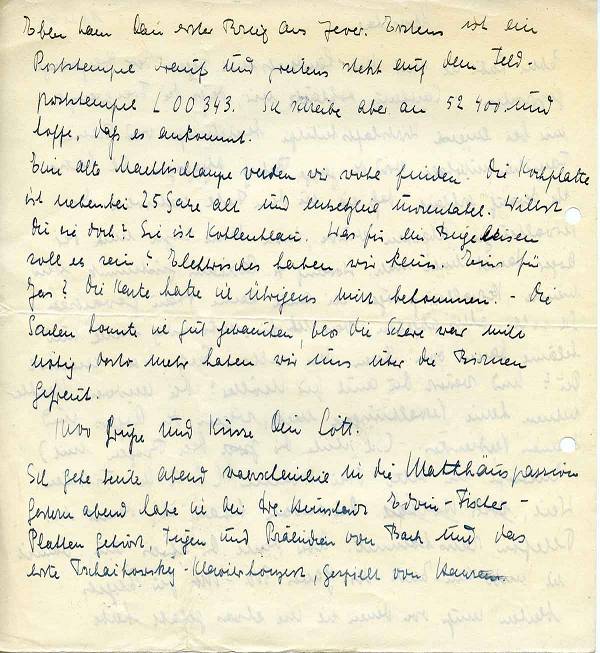 Eben kam Dein erster Brief aus Jever. Erstens ist ein
Poststempel drauf und zweitens steht auf dem Feld-
poststempel L 00 343. Ich schreibe aber an 52 400 und
hoffe, daß es ankommt.
Eine alte Nachttischlampe werden wir wohl finden. Die Kochplatte
ist nebenbei 25 Jahre alt und entsetzlich unrentabel. Willst
Du sie doch? Sie ist Kohlenklau. Was für ein Bügeleisen
soll es sein? Elektrisches haben wir keins. Eins für
Gas? Die Karte hatte ich übrigens nicht bekommen. – Die
Sachen konnte ich gut gebrauchen, blos die Schere war nicht
nötig, desto mehr haben wir uns über die Birnen
gefreut.
Grüße und Küsse Dein Lott.
Ich gehe heute abend warscheinlich in die Matthäuspassion
gestern abend habe ich bei Edwin-Fischer-
Platten gehört, Fugen und Präludien von Bach und das
erste Tschaikowsky-Klavierkonzert, gespielt von